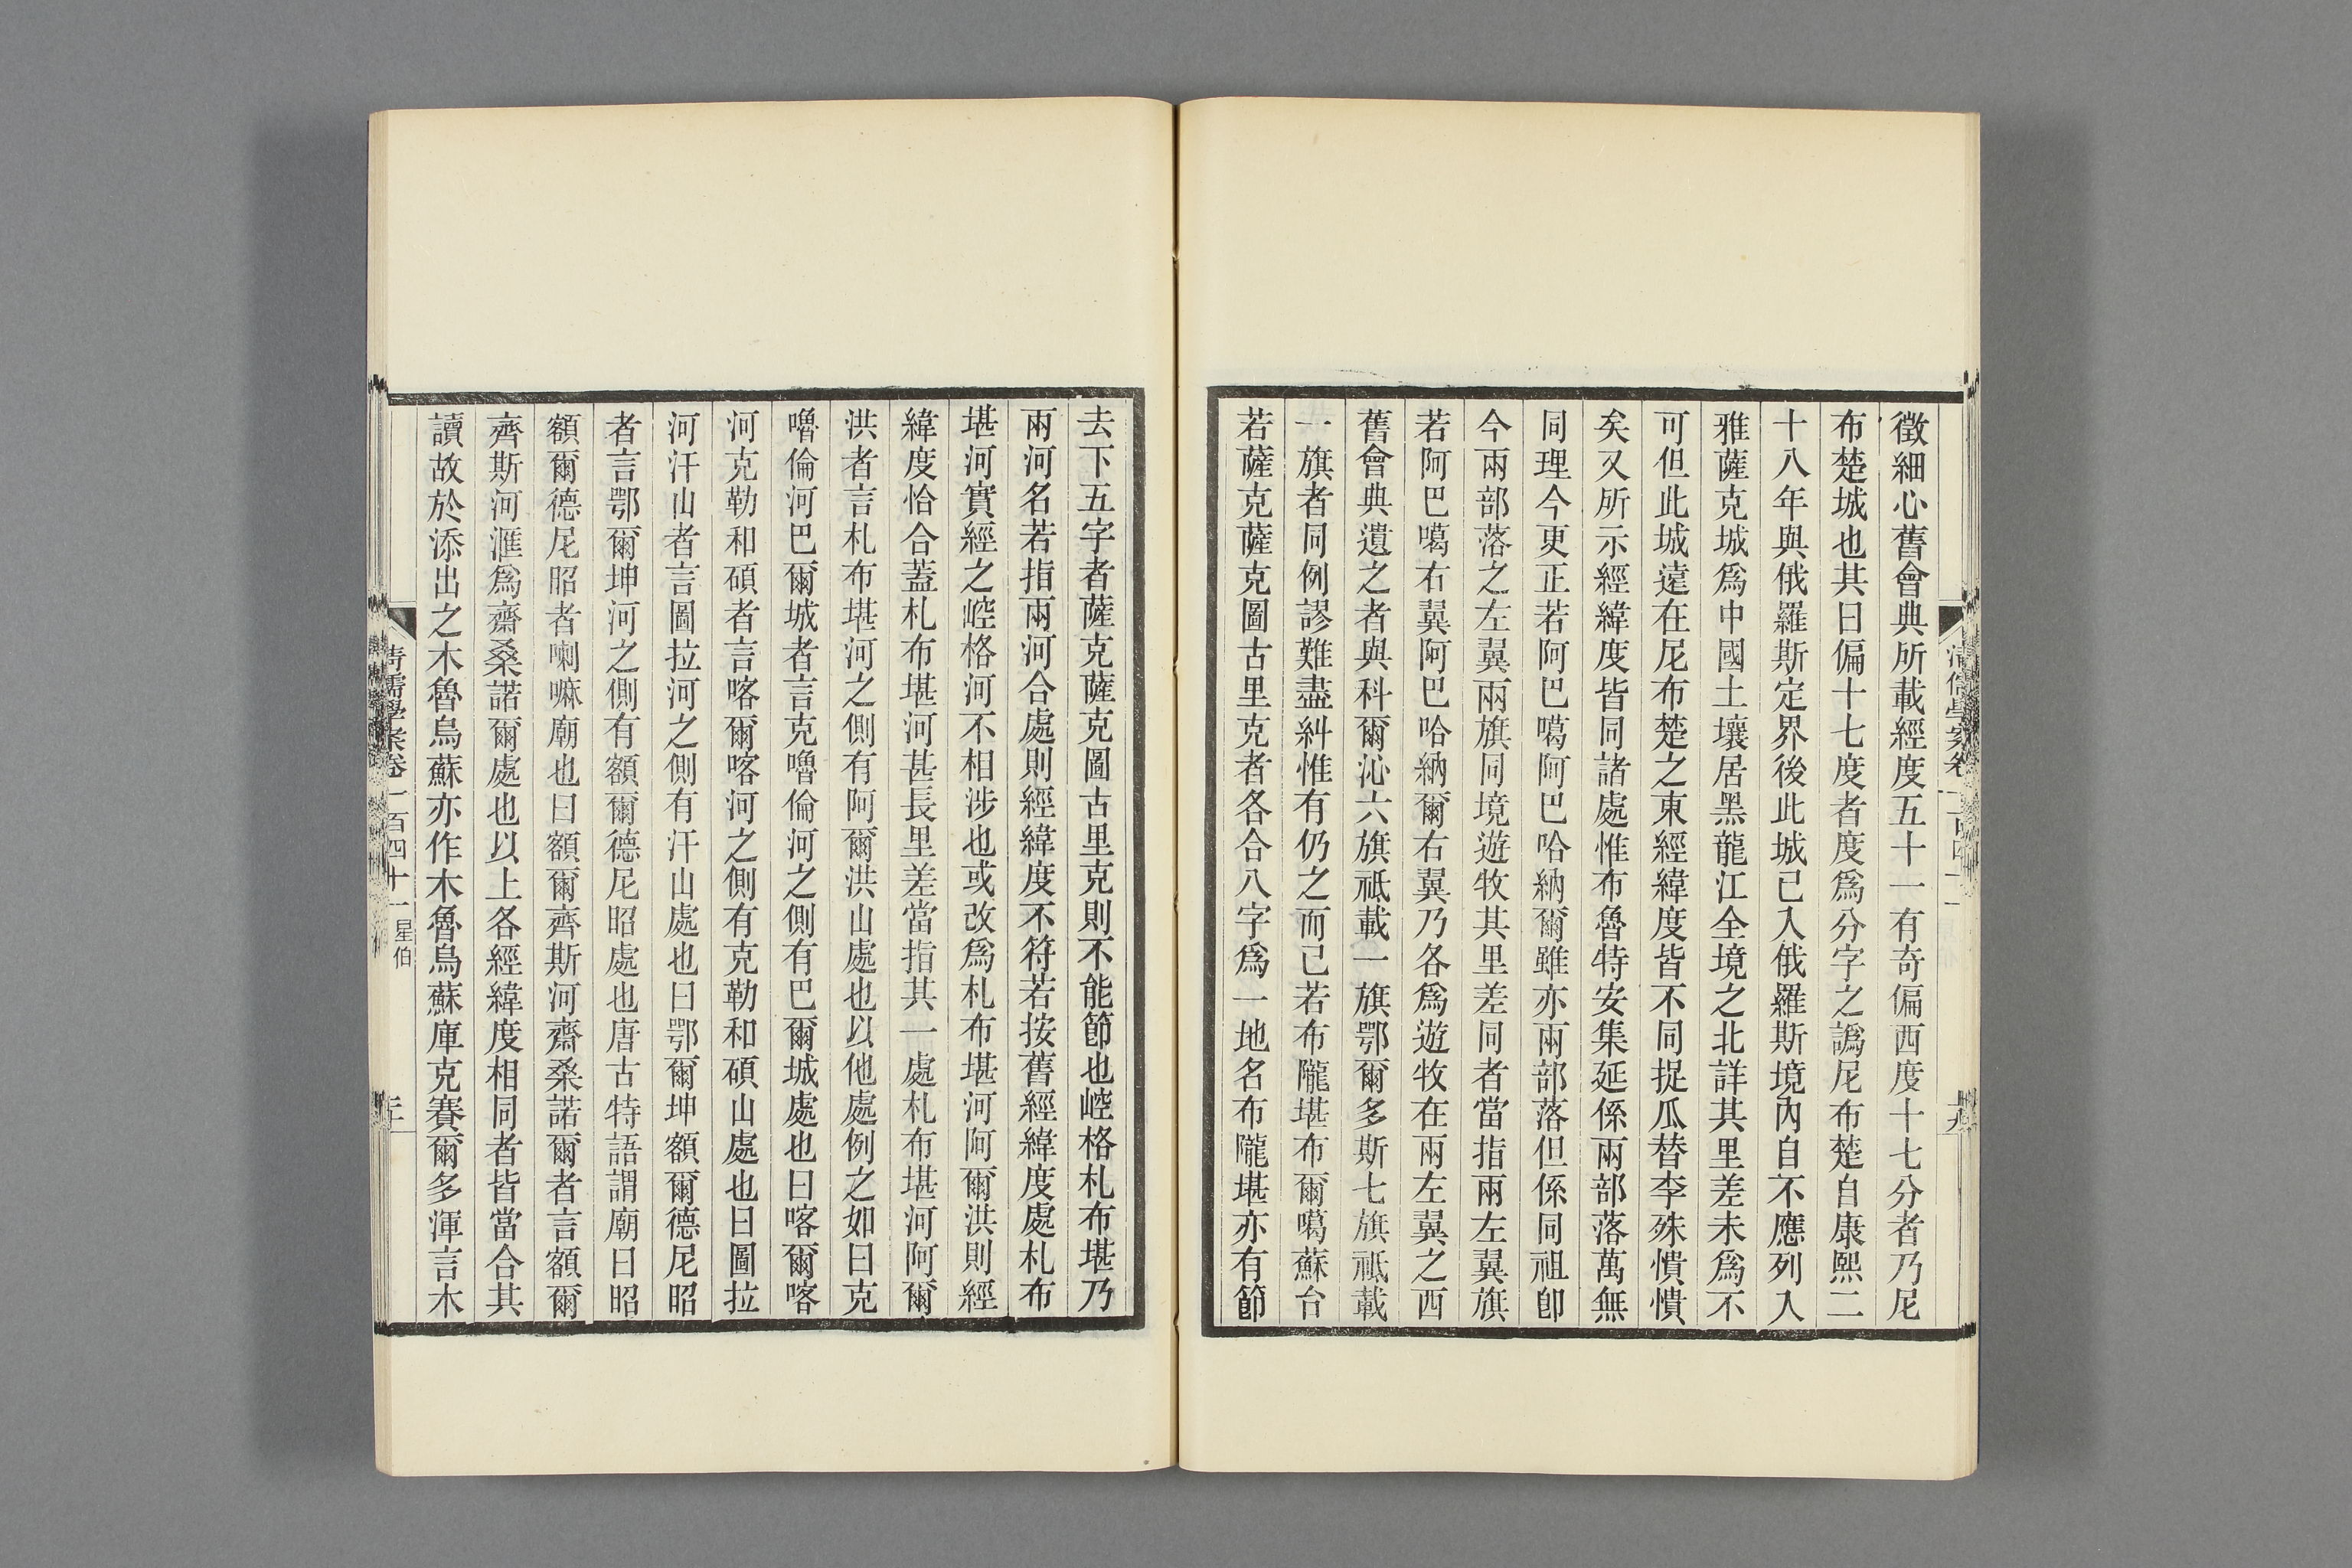 徵細心舊會典所載經度五十一有奇偏西度十七分者乃尼
布楚城也其曰偏十七度者度爲分字之譌尼布楚自康熙二
十八年與俄羅斯定界後此城已入俄羅斯境內自不應列入
雅薩克城爲中國土壤居黑龍江全境之北詳其里差未爲不
可但此城遠在尼布楚之東經緯度皆不同捉瓜替李殊憒憒
矣又所示經緯度皆同諸處惟布魯特安集延係兩部落萬無
同理今更正若阿巴噶阿巴哈納爾雖亦兩部落但係同祖卽
今兩部落之左翼兩旗同境遊牧其里差同者當指兩左翼旗
若阿巴噶右翼阿巴哈納爾右翼乃各爲遊牧在兩左翼之西
舊會典遺之者與科爾沁六旗祗載一旗鄂爾多斯七旗祗載
一旗者同例謬難盡糾惟有仍之而已若布隴堪布爾噶蘇台
若薩克薩克圖古里克者各合八字爲一地名布隴堪亦有節
去下五字者薩克薩克圖古里克則不能節也崆格札布堪乃
兩河名若指兩河合處則經緯度不符若按舊經緯度處札布
堪河實經之崆格河不相涉也或改爲札布堪河阿爾洪則經
緯度恰合蓋札布堪河甚長里差當指其一處札布堪河阿爾
洪者言札布堪河之側有阿爾洪山處也以他處例之如曰克
嚕倫河巴爾城者言克嚕倫河之側有巴爾城處也曰喀爾喀
河克勒和碩者言喀爾喀河之側有克勒和碩山處也曰圖拉
河汗山者言圖拉河之側有汗山處也曰鄂爾坤額爾德尼昭
者言鄂爾坤河之側有額爾德尼昭處也唐古特語謂廟曰昭
額爾德尼昭者喇嘛廟也曰額爾齊斯河齋桑諾爾者言額爾
齊斯河滙爲齋桑諾爾處也以上各經緯度相同者皆當合其
讀故於添出之木魯烏蘇亦作木魯烏蘇庫克賽爾多渾言木
清儒學案卷一百四十一 星伯